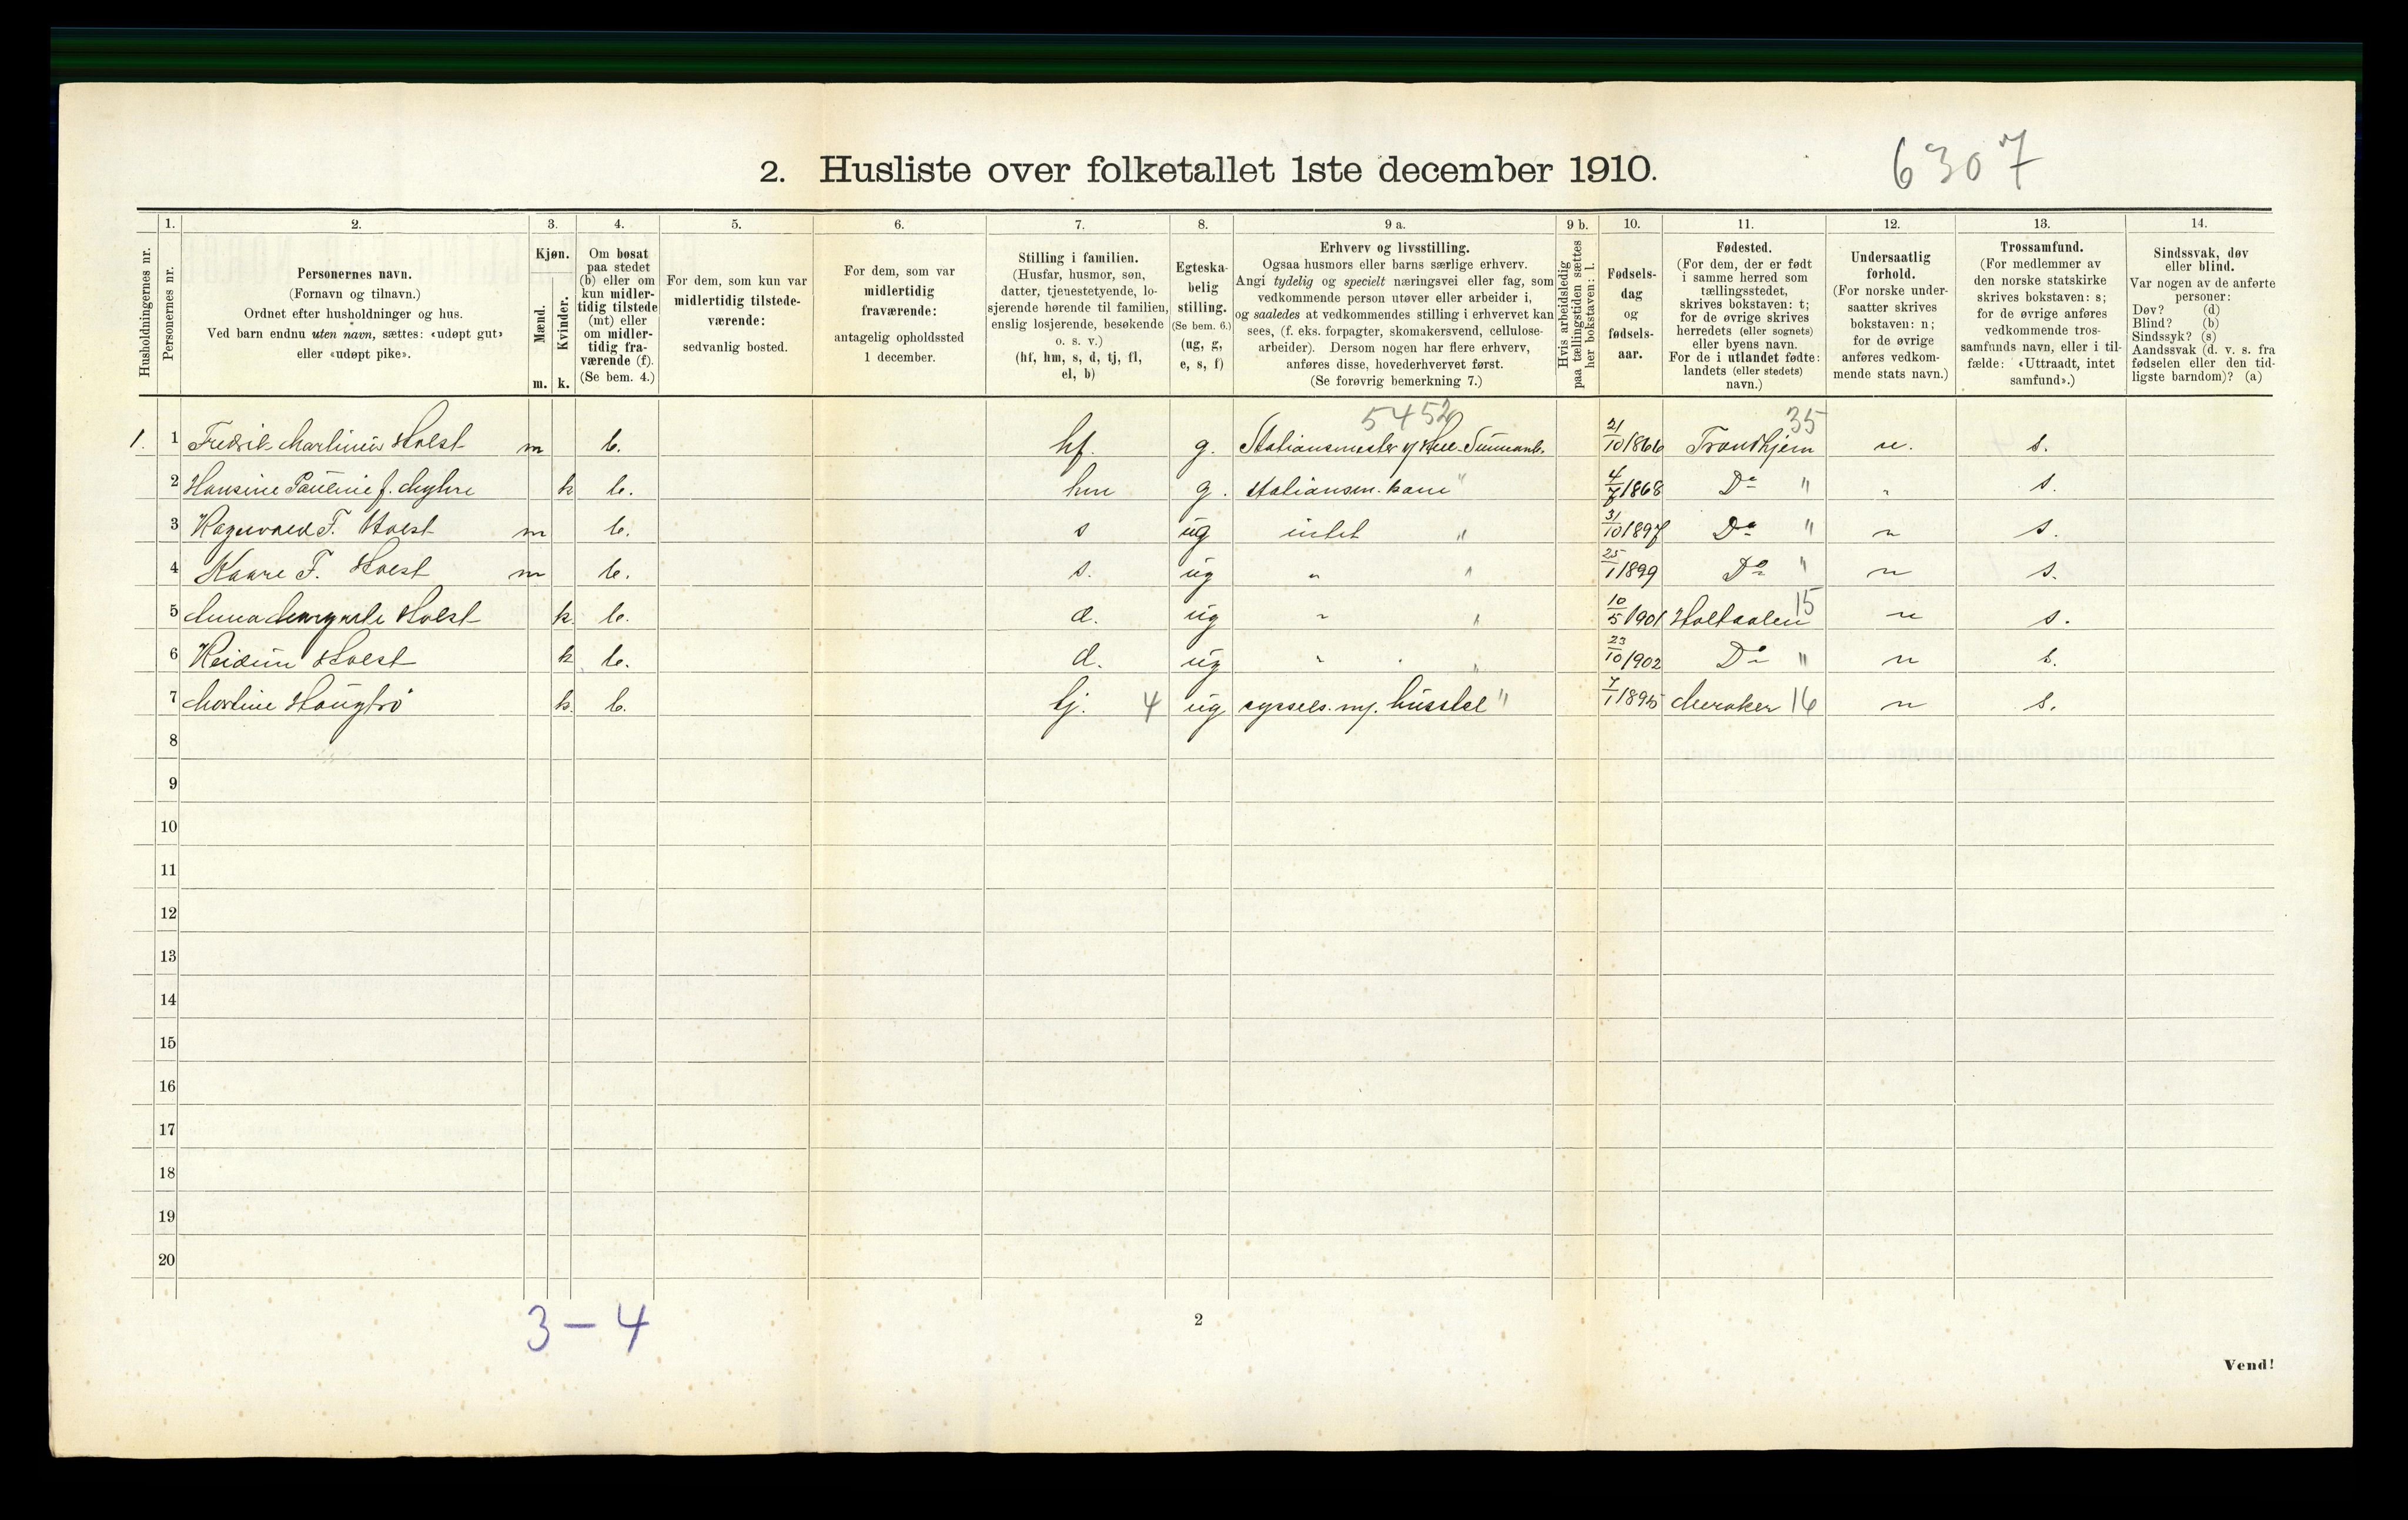 2. Husliste over folketallet 1ste december 1910.
6307
Husholdningernes nr.
1.
Personernes nr.
2.
Personernes navn.
(Fornavn og tilnavn.)
Ordnet efter husholdninger og hus.
Ved barn endnu uten navn, sættes: «udøpt gut»
eller «udøpt pike».
3.
Kjøn.
Mænd.
Kvinder.
m. k.
4.
Om bosat
paa stedet
(b) eller om
kun midler-
tidig tilstede
(mt) eller
om midler-
tidig fra-
værende (f).
(Se bem. 4.)
5.
For dem, som kun var
midlertidig tilstede-
værende:
sedvanlig bosted.
6.
For dem, som var
midlertidig
fraværende:
antagelig opholdssted
1 december.
7.
Stilling i familien.
(Husfar, husmor, søn,
datter, tjenestetyende, lo-
sjerende hørende til familien,
enslig losjerende, besøkende
o. s. v.)
(hf, hm, s, d, tj, fl,
el, b)
8.
Egteska-
belig
stilling.
(Se bem. 6.)
(ug, g,
e, s, f)
9 a.
Erhverv og livsstilling.
Ogsaa husmors eller barns særlige erhverv.
Angi tydelig og specielt næringsvei eller fag, som
vedkommende person utøver eller arbeider i,
og saaledes at vedkommendes stilling i erhvervet kan
sees, (f. eks. forpagter, skomakersvend, cellulose-
arbeider). Dersom nogen har flere erhverv,
anføres disse, hovederhvervet først.
(Se forøvrig bemerkning 7.)
9 b.
Hvis arbeidsledig
paa tællingstiden sættes
her bokstaven: l.
10.
Fødsels-
dag
og
fødsels-
aar.
11.
Fødested.
(For dem, der er født
i samme herred som
tællingsstedet,
skrives bokstaven: t;
for de øvrige skrives
herredets (eller sognets)
eller byens navn.
For de i utlandet fødte:
landets (eller stedets)
navn.)
12.
Undersaatlig
forhold.
(For norske under-
saatter skrives
bokstaven: n;
for de øvrige
anføres vedkom-
mende stats navn.)
13.
Trossamfund.
(For medlemmer av
den norske statskirke
skrives bokstaven: s;
for de øvrige anføres
vedkommende tros-
samfunds navn, eller i til-
fælde: «Uttraadt, intet
samfund».)
14.
Sindssvak, døv
eller blind.
Var nogen av de anførte
personer:
Døv? (d)
Blind? (b)
Sindssyk? (s)
Aandssvak (d. v. s. fra
fødselen eller den tid-
ligste barndom)? (a)
5452 35
1. 1 Fredrik Martinius Holst m b. hf. g. Stationsmester 21/10 1866 Trondhjem n. s.
2 Hansine Pauline f. Myhre k b. hm g. stationsm. kone " 4/7 1868 Do " " s.
3 Ragnvald F. Holst m b. s ug intet " 31/10 1897 Do " n s.
4 Kaare F. Holst m b. s. ug " " 25/1 1899 Do " n s.
5 Anna Margrete Holst k. b. d. ug " " 10/5 1901 Holtaalen 15 n s.
6 Reidun Holst k b. d. ug " " 23/10 1902 Do " n s.
7 Martine Haugtrö k. b. tj. 4 ug syssels. m. husstel " 7/1 1895 Meraker 16 n s.
8
9
10
11
12
13
14
15
16
17
18
19
20
3 - 4
2
Vend!